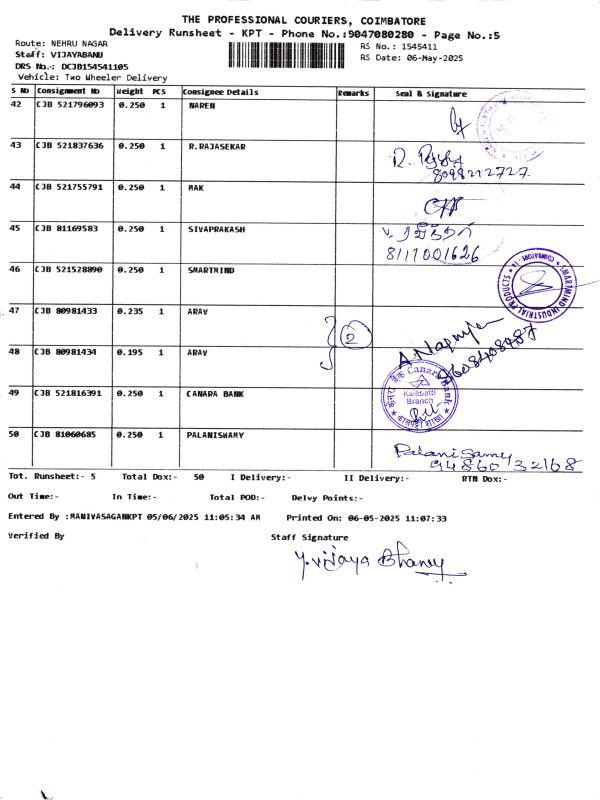 THE PROFESSIONAL COURIERS, COIMBATORE
Delivery Runsheet - KPT - Phone No.:9047080280 - Page No.:5
Route: NEHRU NAGAR
RS No.: 1545411
Staff: VIJAYABANU
RS Date: 06-May-2025
DRS No.: DCJB154541105
Vehicle: Two Wheeler Delivery
S No Consignment No Weight PCS Consignee Details Remarks Seal & Signature
42 CJB 521796093 0.250 1 NAREN
43 CJB 521837636 0.250 1 R.RAJASEKAR
8098212727
44 CJB 521755791 0.250 1 MAK
45 CJB 81169583 0.250 1 SIVAPRAKASH
8111001626
46 CJB 521528890 0.250 1 SMARTMIND
SMARTMIND INDUSTRIAL PRODUCTS
COIMBATORE
47 CJB 80981433 0.235 1 ARAV
2
48 CJB 80981434 0.195 1 ARAV
49 CJB 521816391 0.250 1 CANARA BANK
Canara Bank
Kalapatti
Branch
50 CJB 81060685 0.250 1 PALANISWAMY
Palani Samy
94860 32168
Tot. Runsheet:- 5 Total Dox:- 50 I Delivery:- II Delivery:- RTN Dox:-
Out Time:- In Time:- Total POD:- Delvy Points:-
Entered By :MANIVASAGANKPT 05/06/2025 11:05:34 AM Printed On: 06-05-2025 11:07:33
Verified By Staff Signature
Y.Vijaya Bhanu